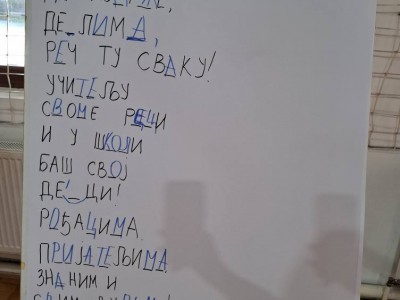 ДЕ_ЛИМА,
РЕЧ ТУ СВАКУ!
УЧИТЕЉУ
СВОМЕ РЕЦИ
И У ШКОЛИ
БАШ СВОЈ
ДЕ_ЦИ!
РОЂАЦИМА
ПРИЈАТЕЉИМА
ЗНАНИМ И